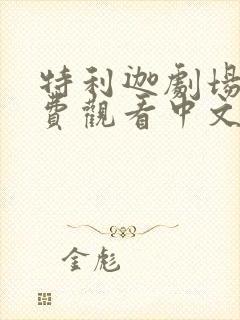 特利迦劇場
費觀看中文
金彪